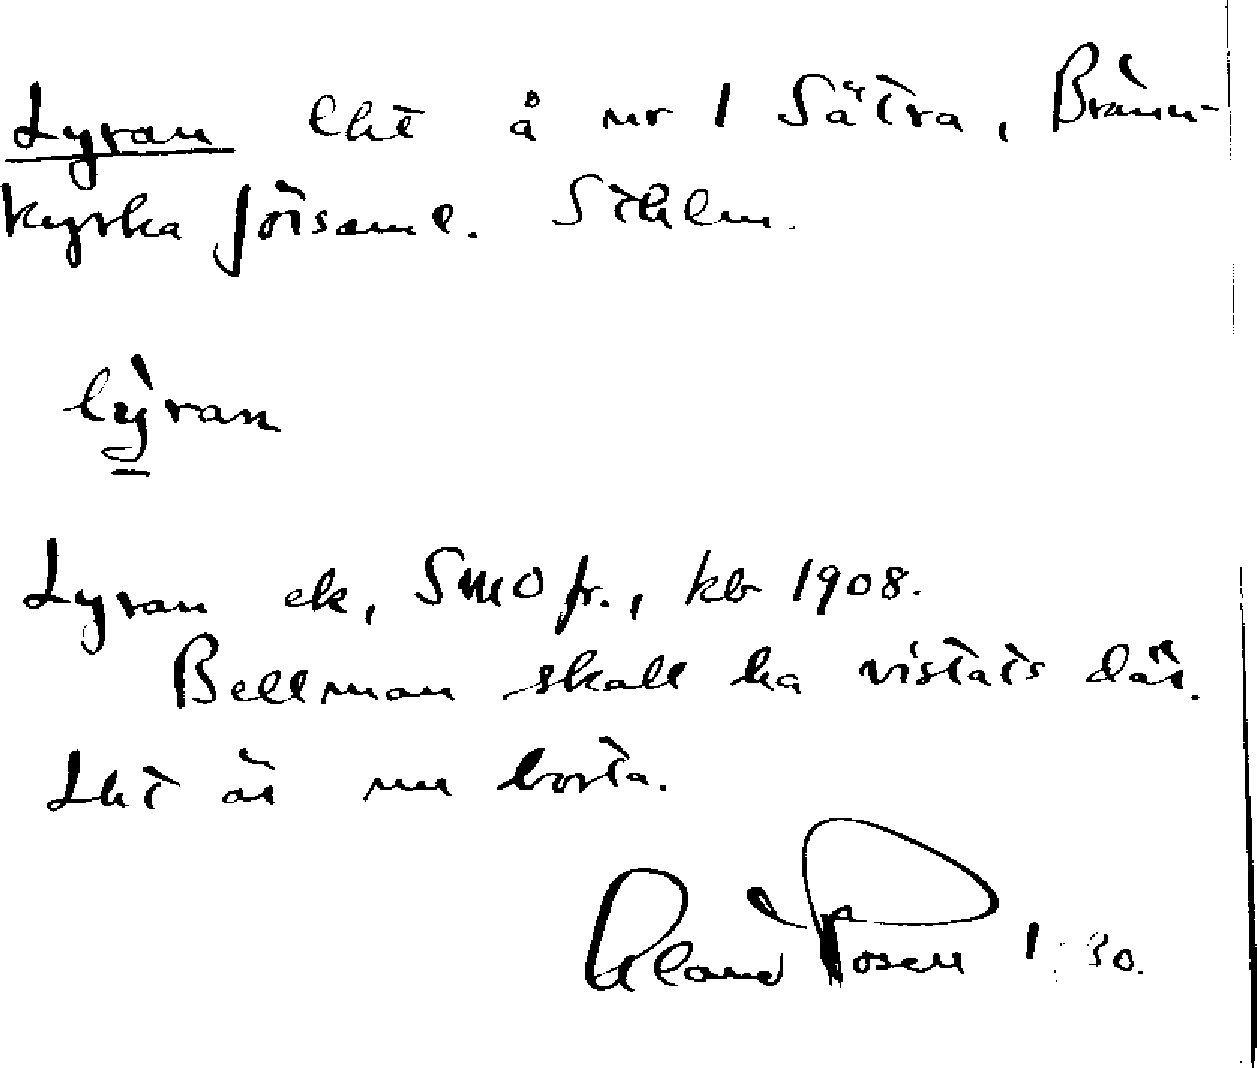 Lyran lht å nr 1 Sätra, Bränn-
kyrka församl. Sthlm.
lỳran
Lyran ek, SMO fr., kb 1908.
Bellman skall ha vistats där.
Lht är nu borta.
Rosell 1: 30.